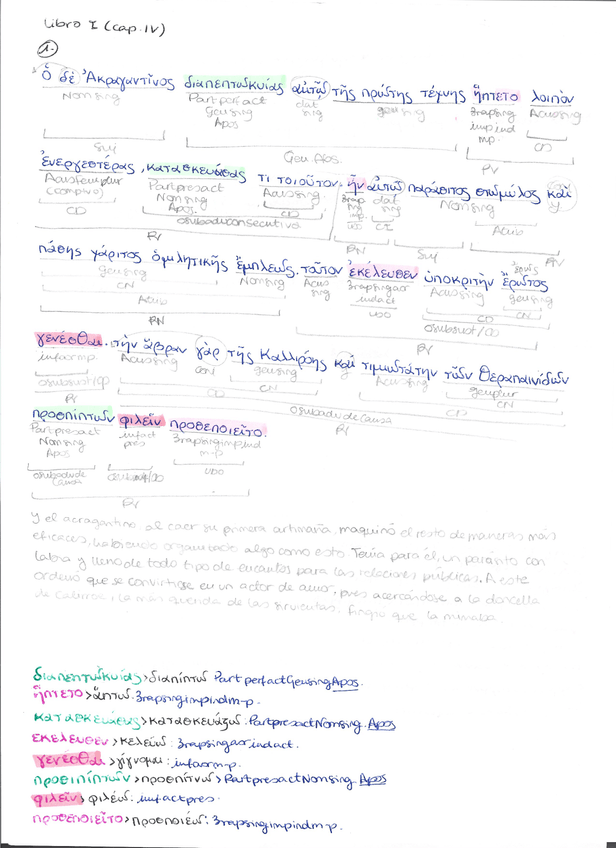 Libro I (cap. IV)
1.
Ὁ δὲ Ἀκραγαντῖνος διαπεπτωκυίας αὐτῷ τῆς πρώτης τέχνης ἥπτετο λοιπὸν
Nomsing Partperfact dat gensing 3rapsing Acusing
Gensing sing impind
Apos mp. CD
Suj Gen. Abs. PV
ἐνεργεστέρας, κατασκευάσας τι τοιοῦτον. ἦν αὐτῷ παράσιτος στωμύλος καὶ
Partpresact Acusing dat Nomsing
Nomsing sing
Apos. CD CI Atrib
CD PN Suj
PV
πάσης χάριτος ὁμιλητικῆς ἔμπλεως. τοῦτον ἐκέλευσεν ὑποκριτὴν ἔρωτος
gensing Nomsing Acu 3rapsingaor Acusing gensing
CN sing indact
Atrib CD CN
PN PV
γενέσθαι. τὴν ἅβραν γὰρ τῆς Καλλιρόης καὶ τιμιωτάτην τῶν θεραπαινίδων
Acusing gensing Acusing genplur
CD CN CN
PV CD
PV
προσπίπτων φιλεῖν προσεποιεῖτο.
Partpresact infact 3rapsingimpind
Nomsing pres m-p
Apos
PV
Y el acragantino al caer su primera artimaña, maquinó el resto de maneras más
eficaces, habiendo organizado algo como esto. Tenía para él, un parásito con
labia y lleno de todo tipo de encantos para las relaciones públicas. A este
ordenó que se convirtiese en un actor de amor, pues acercándose a la doncella
de Calírroe, la más querida de las sirvientas, fingió que la amaba.
διαπεπτωκυίας > διαπίπτω Part perfact Gensing Apos.
ἥπτετο > ἅπτω. 3rapsingimpind m-p.
κατασκευάσας > κατασκευάζω. Partpresact Nomsing. Apos
ἐκέλευσεν > κελεύω: 3rapsingaor. indact.
γενέσθαι > γίγνομαι: infaorm-p.
προσπίπτων > προσπίτνω > Partpresact Nomsing. Apos
φιλεῖν > φιλέω: infactpres.
προσεποιεῖτο > προσποιέω: 3rapsingimpind m-p.